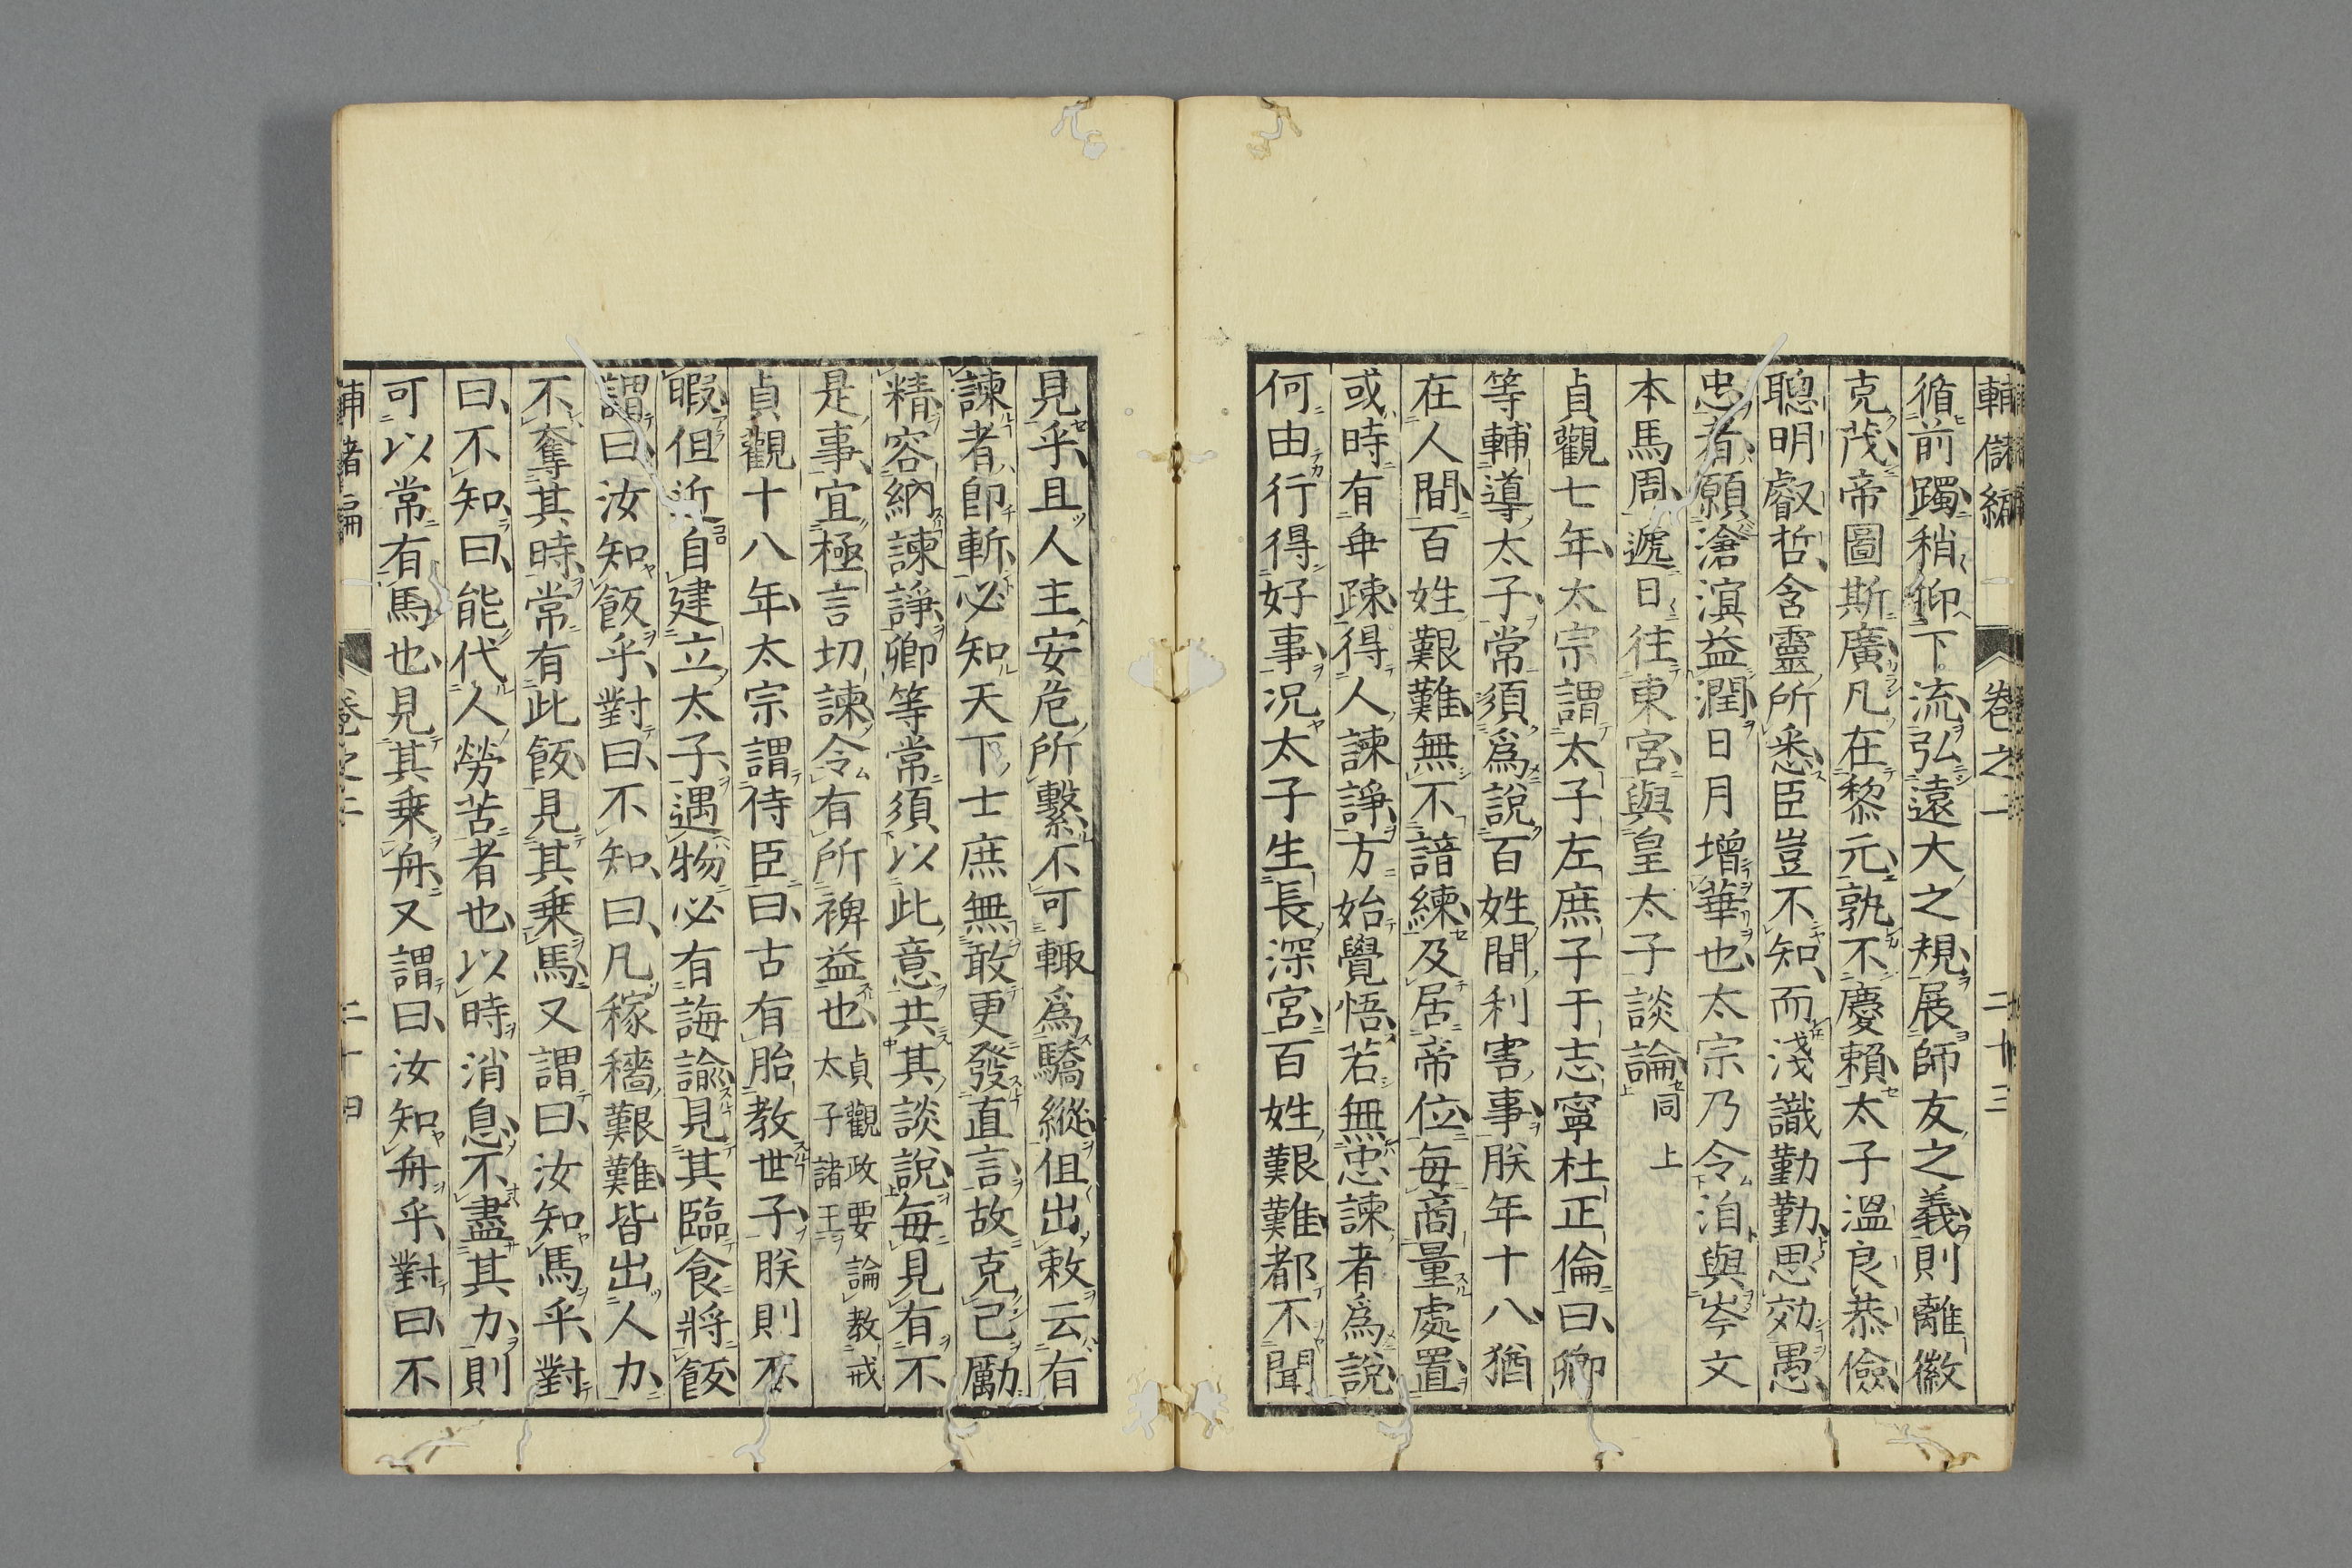 輔儲編 卷之一 二十三
循前躅稍仰下流弘遠大之規展師友之義則離徽
克茂帝圖斯廣凡在黎元孰不慶賴太子溫良恭儉
聰明叡哲含靈所悉臣豈不知而淺識勤勤思効愚
忠者願滄溟益潤日月增華也太宗乃令洎與岑文
本馬周遞日往東宮與皇太子談論同上
貞觀七年太宗謂太子左庶子于志寧杜正倫曰卿
等輔導太子常須爲說百姓間利害事朕年十八猶
在人間百姓艱難無不諳練及居帝位每商量處置
或時有乖疎得人諫諍方始覺悟若無忠諫者爲說
何由行得好事況太子生長深宮百姓艱難都不聞
見乎且人主安危所繫不可輙爲驕縱但出敕云有
諫者卽斬必知天下士庶無敢更發直言故克己勵
精容納諫諍卿等常須以此意共其談說每見有不
是事宜極言切諫令有所裨益也貞觀政要論教戒太子諸王
貞觀十八年太宗謂侍臣曰古有胎教世子朕則不
暇但近自建立太子遇物必有誨諭見其臨食將飯
謂曰汝知飯乎對曰不知曰凡稼穡艱難皆出人力
不奪其時常有此飯見其乗馬又謂曰汝知馬乎對
曰不知曰能代人勞苦者也以時消息不盡其力則
可以常有馬也見其乗舟又謂曰汝知舟乎對曰不